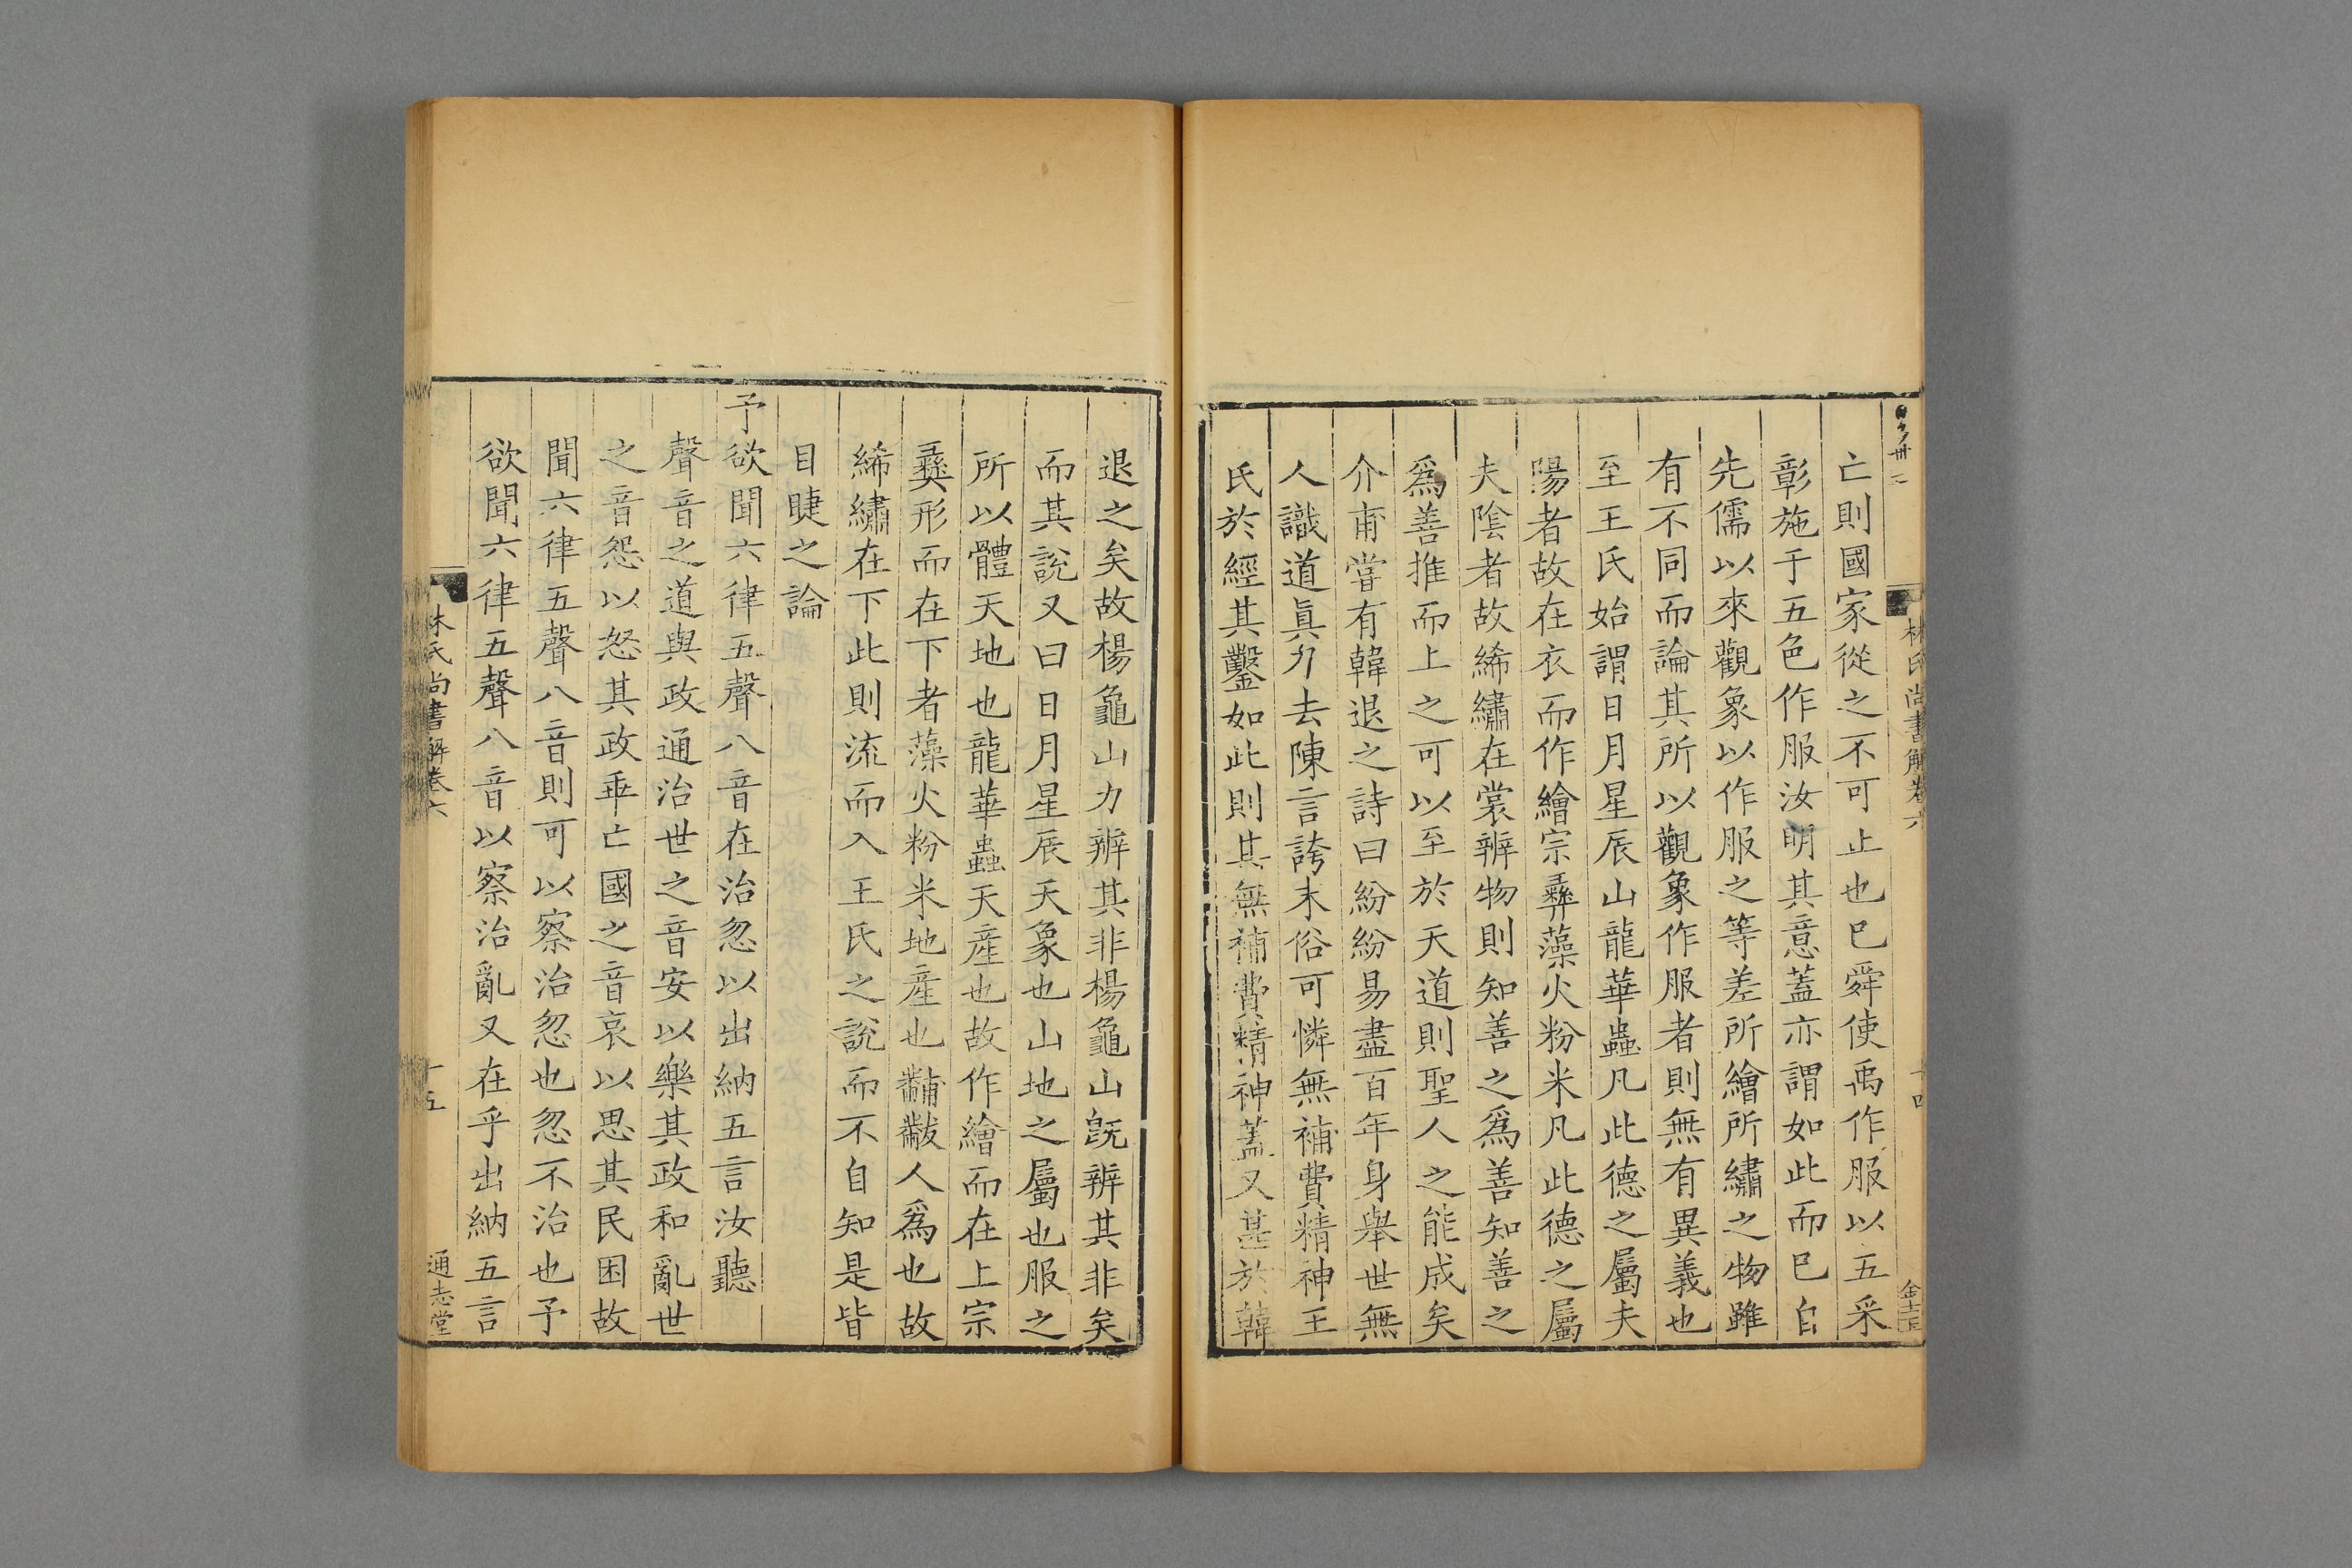 林氏尚書解卷六
十四
亡則國家從之不可止也已舜使禹作服以五采
彰施于五色作服汝明其意蓋亦謂如此而已自
先儒以來觀象以作服之等差所繪所繡之物雖
有不同而論其所以觀象作服者則無有異義也
至王氏始謂日月星辰山龍華蟲凡此德之屬夫
陽者故在衣而作繪宗彝藻火粉米凡此德之屬
夫陰者故絺繡在裳辨物則知善之爲善知善之
爲善推而上之可以至於天道則聖人之能成矣
介甫嘗有韓退之詩曰紛紛易盡百年身舉世無
人識道眞力去陳言誇末俗可憐無補費精神王
氏於經其鑿如此則其無補費精神蓋又甚於韓
退之矣故楊龜山力辨其非楊龜山旣辨其非矣
而其說又曰日月星辰天象也山地之屬也服之
所以體天地也龍華蟲天産也故作繪而在上宗
彝形而在下者藻火粉米地産也黼黻人爲也故
絺繡在下此則流而入王氏之說而不自知是皆
目睫之論
予欲聞六律五聲八音在治忽以出納五言汝聽
聲音之道與政通治世之音安以樂其政和亂世
之音怨以怒其政乖亡國之音哀以思其民困故
聞六律五聲八音則可以察治忽也忽不治也予
欲聞六律五聲八音以察治亂又在乎出納五言
林氏尚書解卷六
十五
通志堂